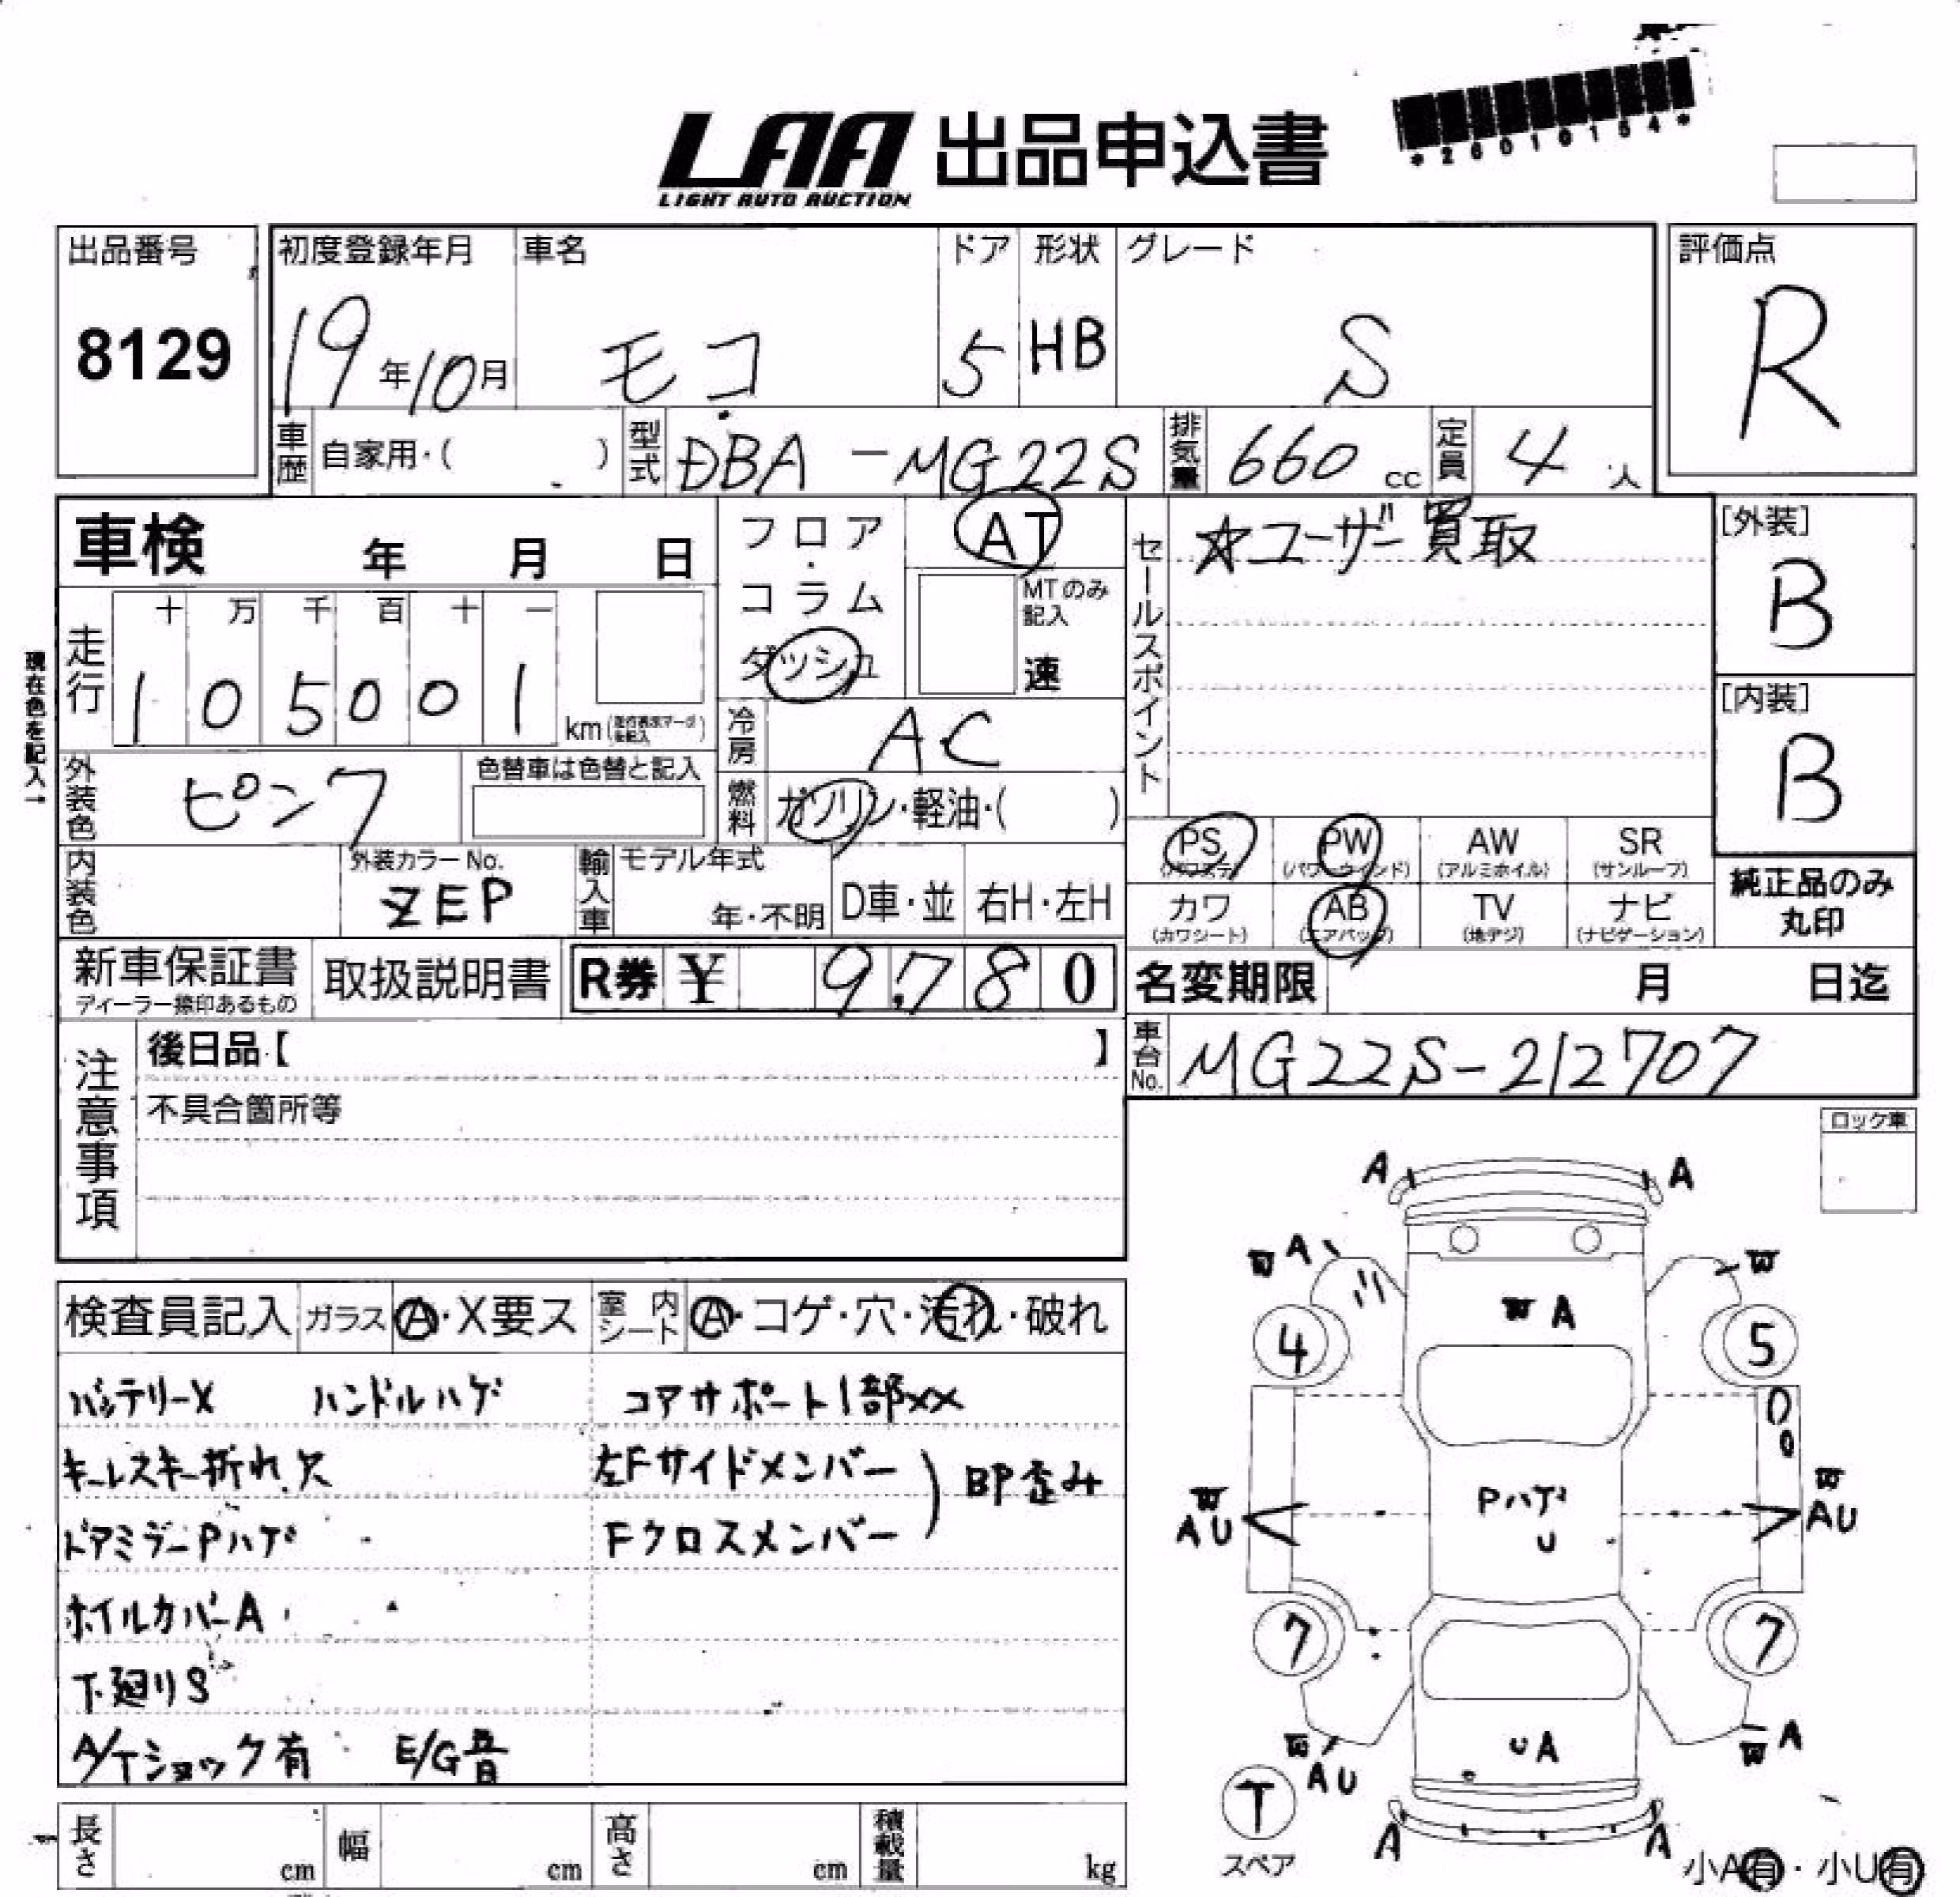 LAA 出品申込書
LIGHT AUTO AUCTION
*26010154*
出品番号 初度登録年月 車名 ドア 形状 グレード 評価点
8129 19年10月 モコ 5 HB S R
車歴 自家用・( ) 型式 DBA-MG22S 排気量 660 cc 定員 4 人
車検 年 月 日
フロア・コラム ダッシュ
AT
MTのみ記入
速
セールスポイント
☆ユーザー買取
[外装]
B
[内装]
B
現在色を記入→
走行 十 万 千 百 十 一
1 0 5 0 0 1 km
冷房 AC
外装色 ピンク 色替車は色替と記入
燃料 ガソリン・軽油・( )
PS (パワステ) PW (パワーウィンド) AW (アルミホイル) SR (サンルーフ)
カワ (カワシート) AB (エアバッグ) TV (地デジ) ナビ (ナビゲーション)
純正品のみ
丸印
内装色 外装カラーNo. ZEP 輸入車 モデル年式 年・不明 D車・並 右H・左H
新車保証書 ディーラー捺印あるもの 取扱説明書 R券 ¥ 9,780
名変期限 月 日迄
車台No. MG22S-212707
注意事項
後日品【 】
不具合箇所等
ロック車
検査員記入 ガラス A・X要ス 室内シート A・コゲ・穴・汚れ・破れ
バッテリーX ハンドルハゲ コアサポート1部XX
キーレスキー折れ、欠 左Fサイドメンバー
BP歪み
ドアミラーPハゲ Fクロスメンバー
ホイルカバーA
下廻りS
A/Tショック有 E/G音
長さ cm 幅 cm 高さ cm 積載量 kg
A A
W A W
W A
4 5
W AU
Pハゲ
U
W AU
7 7
W AU
UA
W A
T
スペア
A A
小A有・小U有